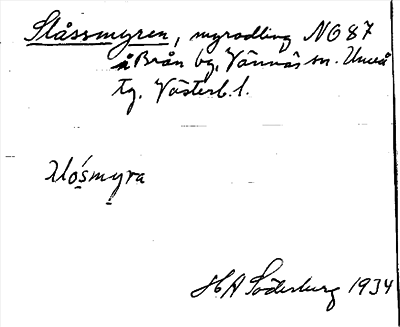 Slåssmyren, myrodling NO 87
å Brån bg, Vännäs sn. Umeå
tg. Västerb. l.
slósmyra
H A Söderburg 1934